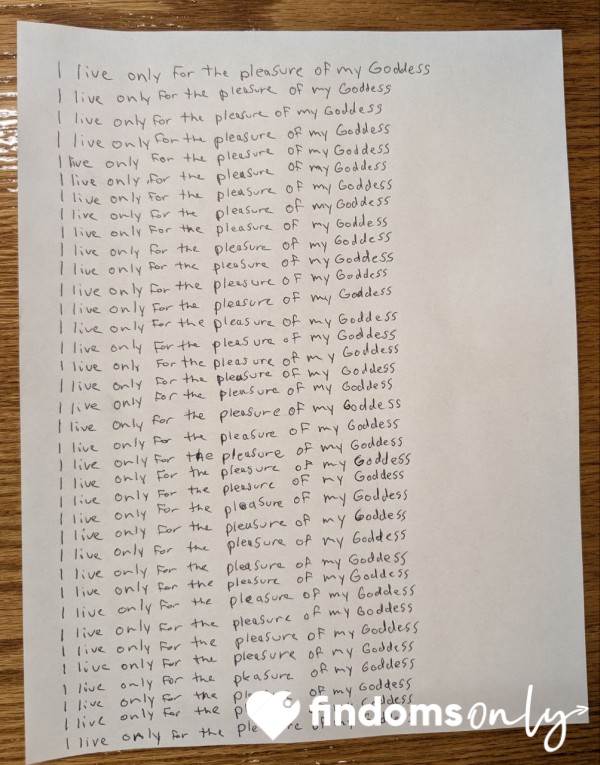 I live only for the pleasure of my Goddess
I live only for the pleasure of my Goddess
I live only for the pleasure of my Goddess
I live only for the pleasure of my Goddess
I live only for the pleasure of my Goddess
I live only for the pleasure of my Goddess
I live only for the pleasure of my Goddess
I live only for the pleasure of my Goddess
I live only for the pleasure of my Goddess
I live only for the pleasure of my Goddess
I live only for the pleasure of my Goddess
I live only for the pleasure of my Goddess
I live only for the pleasure of my Goddess
I live only for the pleasure of my Goddess
I live only for the pleasure of my Goddess
I live only for the pleasure of my Goddess
I live only for the pleasure of my Goddess
I live only for the pleasure of my Goddess
I live only for the pleasure of my Goddess
I live only for the pleasure of my Goddess
I live only for the pleasure of my Goddess
I live only for the pleasure of my Goddess
I live only for the pleasure of my Goddess
I live only for the pleasure of my Goddess
I live only for the pleasure of my Goddess
I live only for the pleasure of my Goddess
I live only for the pleasure of my Goddess
I live only for the pleasure of my Goddess
I live only for the pleasure of my Goddess
I live only for the pleasure of my Goddess
I live only for the pleasure of my Goddess
I live only for the pleasure of my Goddess
I live only for the pleasure of my Goddess
I live only for the of my Goddess
I live only for the
I live only for the of my
findomsonly